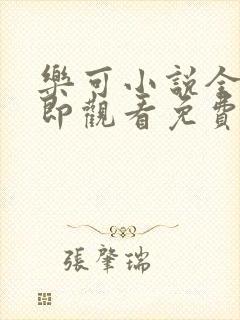 樂可小說全
即觀看免費
張肇瑞